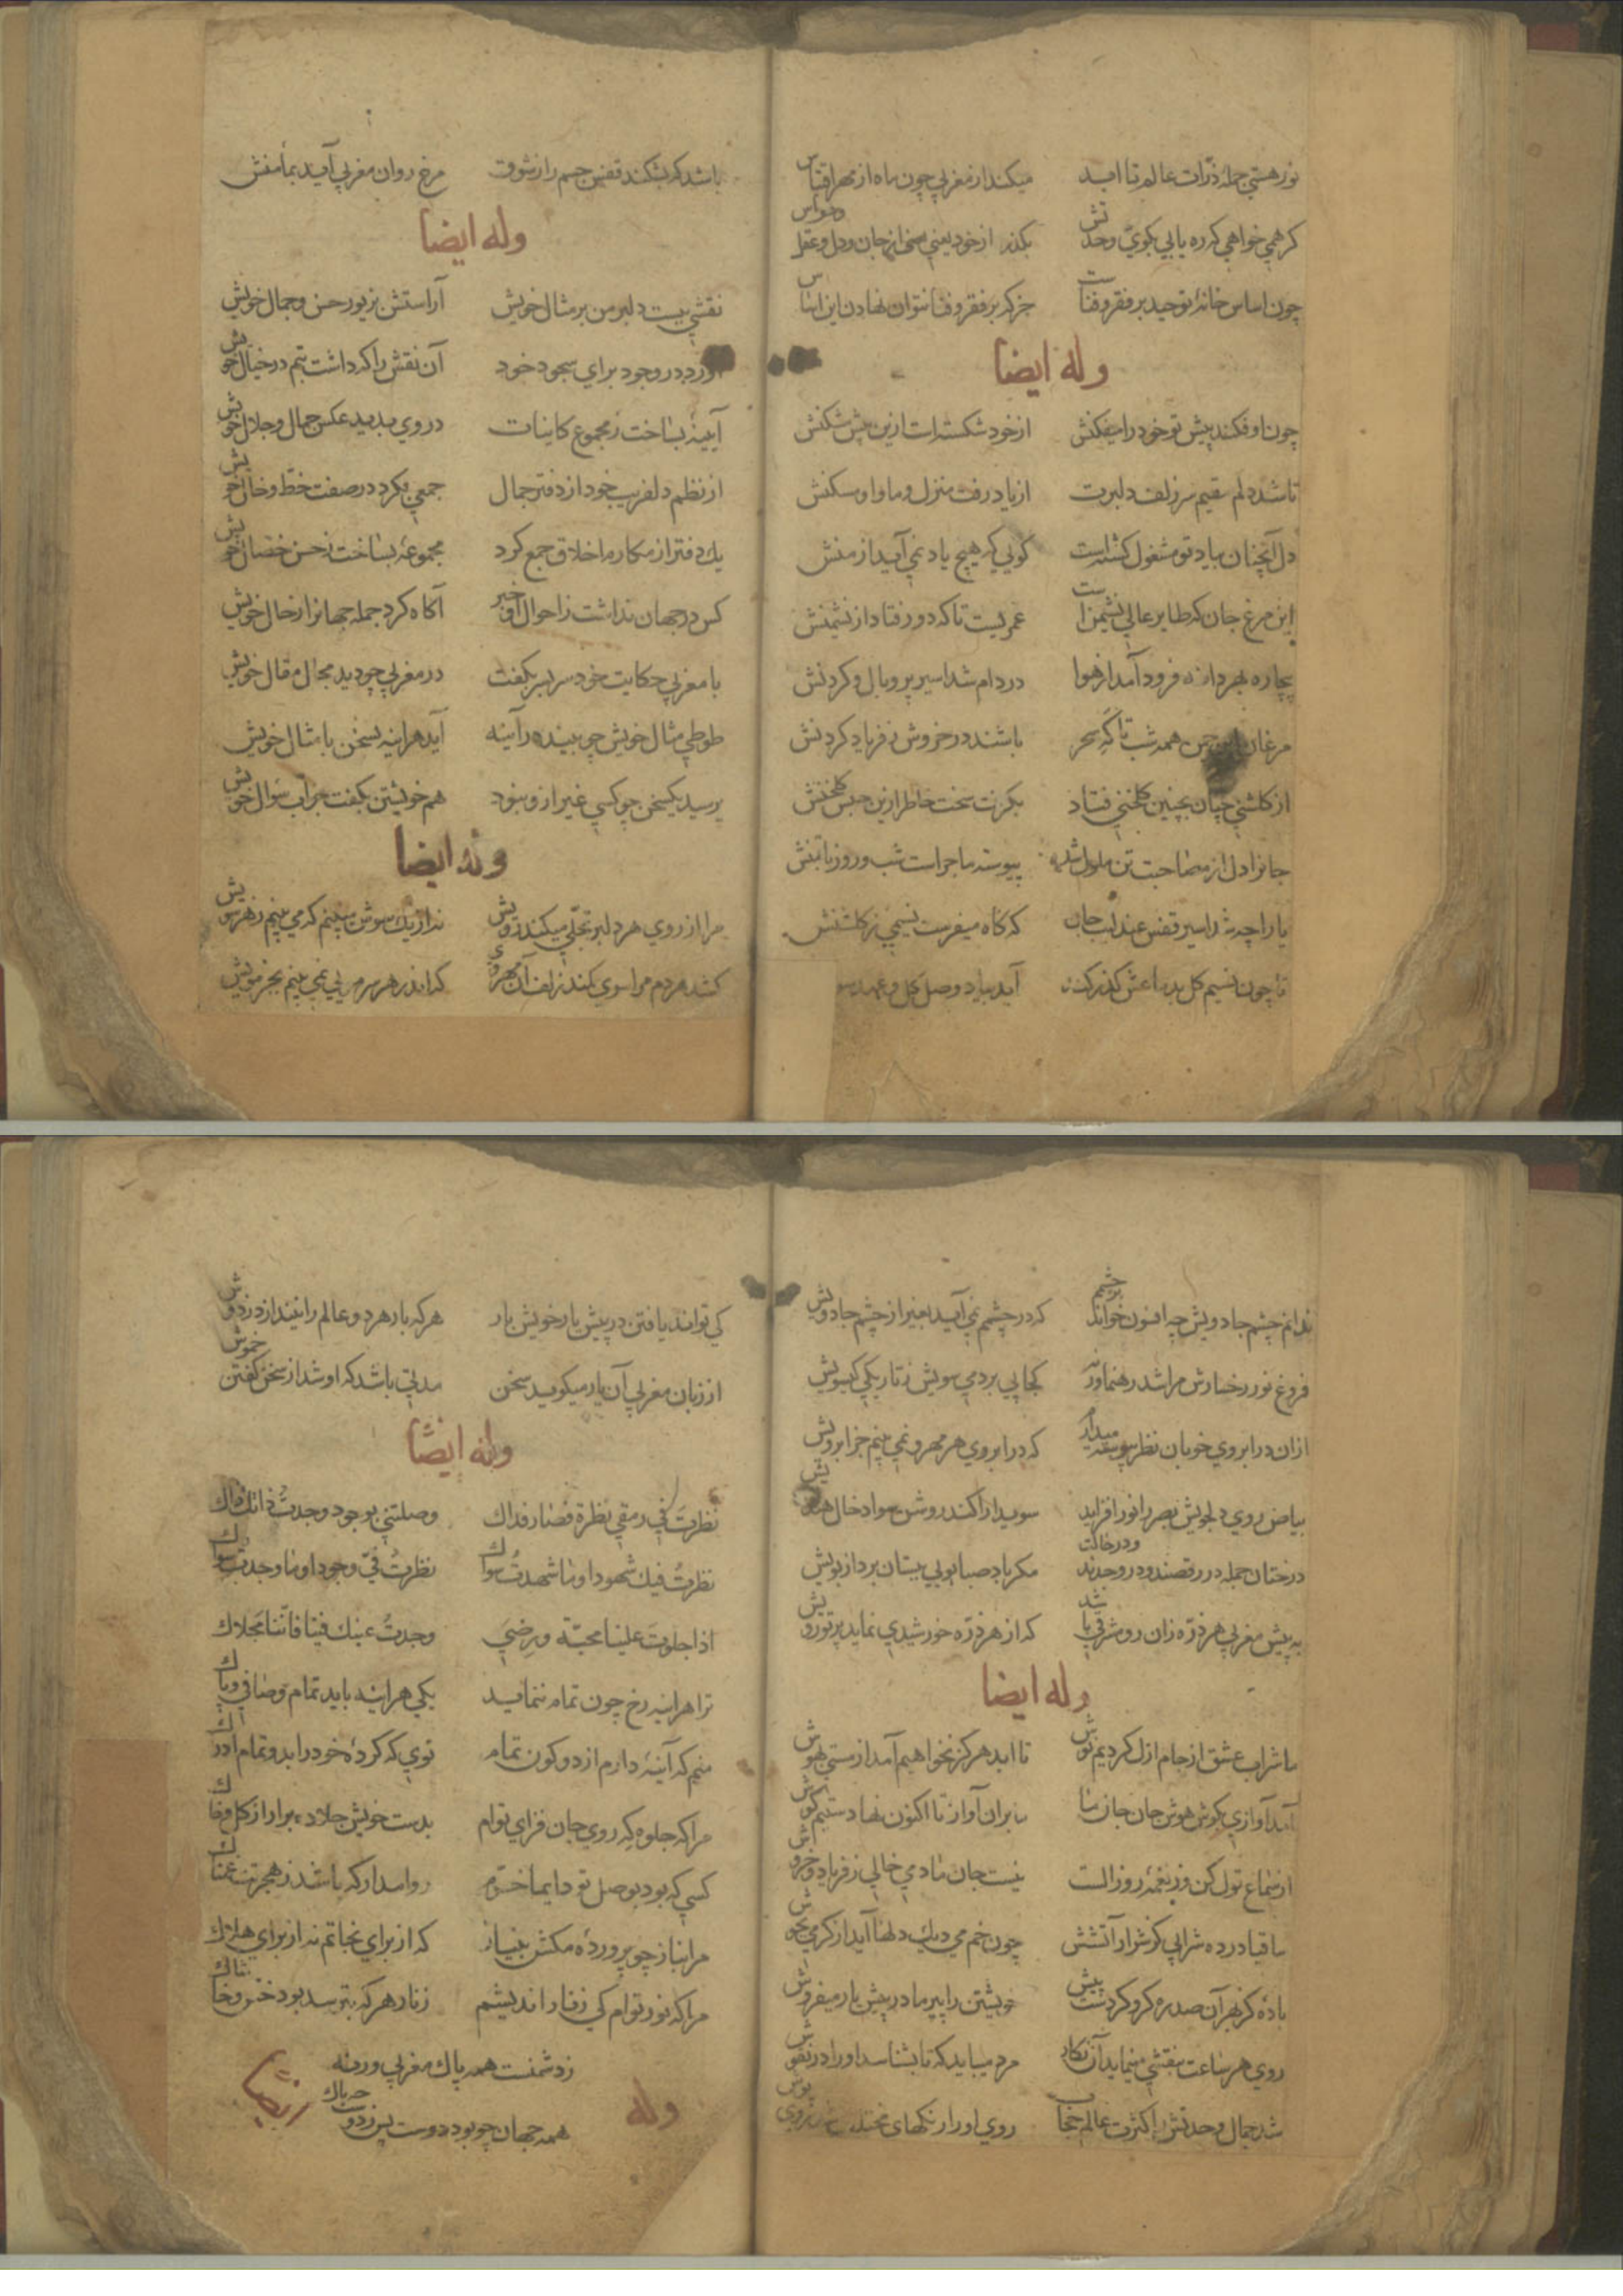 نور هستي جمله ذرّات عالم تا ابد میکند از مغربي چون ماه از مهر اقتباس
کر همي خواهي که ره یابي بکوي وحدتش بکذر از خود یعني از جان و دل و عقل و حواس
چون اساس خانهٔ توحید بر فقر و فناست جز که بر فقر و فنا نتوان نهادن این اساس
وله ایضا
چون او فکند پیش تو خود را میفکنش از خود شکسته است ازین بیش مشکنش
تا شد دلم مقیم سر زلف دلبرت از یاد رفت منزل و ماوا و مسکنش
دل آنچنان بیاد تو مشغول کشته است کویي که هیچ یاد نمي آید از منش
این مرغ جان که طایر عالي نشیمن است عمریست تا که دور فتاد از نشیمنش
بیچاره بهر دانه فرود آمد از هوا در دام شد اسیر پر و بال و کردنش
مرغان چمن همه شب تا که سحر باشند در خروش ز فریاد کردنش
از کلشني چنان بچنین کلخني فتاد بکرفت سخت خاطر ازین حبس کلخنش
جانرا دل از مصاحبت تن ملول شد پیوسته ماجراست شب و روز با تنش
یا را چه شد اسیر قفس عندلیب جان که کاه میفرست نسیمي ز کلشنش
تا چون نسیم کل بدماغش کذر کند آید بیاد وصل کل و عهد
باشد که بشکند قفس جسم را ز شوق مرغ روان مغربي آید بمأمنش
وله ایضا
نقشي ببست دلبر من بر مثال خویش آراستش بزیور حسن و جمال خویش
آورد در وجود براي سجود خود آن نقش را که داشت بتم در خیال خویش
آیینهٔ بساخت ز مجموع کاینات در وي بدید عکس جمال و جلال خویش
از نظم دلفریب خود از دفتر جمال جمعي بکرد در صفت خط و خال خویش
یك دفتر از مکارم اخلاق جمع کرد مجموعهٔ بساخت ز حسن خصال خویش
کس در جهان نداشت ز احوال او خبر آکاه کرد جمله جهانرا ز حال خویش
با مغربي حکایت خود سر بسر بکفت در مغربي چو دید مجال مقال خویش
طوطي مثال خویش چو بیند در آینه آید هر اینه بسخن با مثال خویش
پرسید یکسخن چو کسي غیر ازو نبود هم خویشتن بکفت جواب سؤال خویش
وله ایضا
مرا از روي هر دلبر تجلّي میکند رویش نه از یك سوش میبینم که مي بینم ز هر سویش
کشد هر دم مرا سوي کمند زلف آن مهروي که اندر هر سر مویي نمي بینم بجز مویش
ندانم چشم جادویش چه افسون خواند بر چشمم که در چشمم نمي آید بغیر از چشم جادویش
فروغ نور رخسارش مرا شد رهنما ورنه کجا پي بردمي سویش ز تاریکي کیسویش
ازان در ابروي خوبان نظر پیوسته میدارم که در ابروي هر مهرو نمي بینم جز ابرویش
بیاض روي دلجویش بصر را نور افزاید سویدا را کند روشن سواد خال هندویش
درختان جمله در رقصند و در وجدند و در حالت مکر باد صبا بویي ببستان برد از بویش
به پیش مغربي هر ذرّه زان رو مشرقي باشد که از هر ذرّه خورشیدي نماید پرتو رویش
وله ایضا
ما شراب عشق از جام ازل کردیم نوش تا ابد هرکز نخواهیم آمد از مستي بهوش
آمد آوازي بکوش هوش جان جان ما ما بران آواز تا اکنون نهادستیم کوش
از سماع قول کن وز نغمهٔ روز الست نیست جان ما دمي خالي ز فریاد و خروش
ساقیا در ده شرابي کز شرار آتشش چون خم مي دیك دلها آید از کرمي بجوش
بادهٔ کز بهر آن صد ره کرو کردست پیش خویشتن را پیر ما در پیش یار میفروش
روي هر ساعت بنقشي مینماید آن نکار مرد میباید که تا بشناسد او را در نقوش
شد جمال وحدتش را کثرت عالم حجاب روي او را رنکهاي مختلف روي پوش
کي تواند یافتن در پیش یار خویش بار هر که بار هر دو عالم را نیندازد ز دوش
از زبان مغربي آن یار میکوید سخن مدتي باشد که او شد از سخن کفتن خموش
وله ایضًا
نظرتَ في رمقي نظرة فصار فداك وصلتني بوجود وجدتُ ذاتك ذاك
نظرتُ فیك شهودا وما شهدتُ سواك نظرتُ فيّ وجودا وما وجدتُ سواك
اذا جلوتَ علینا محبّة ورضيَ وجدتُ عینك فینا فاننا مجلاك
ترا هر اینه رخ چون تمام ننماید یکي هر اینه باید تمام و صافي و پاك
منم که آینهٔ دارم از دو کون تمام توي که کردهٔ خود را بدو تمام ادراك
مرا که جلوه که روي جان فزاي توام بدست خویش جلا ده برار از کل و خاك
کسي که بود بوصل تو دایما خرّم روا مدار که باشد ز هجرتت غمناك
مرا بناز چو پروردهٔ مکش بنیاز که از براي نجاتم نه از براي هلاك
مرا که نور توام کي ز نار اندیشم ز نار هر که بترسد بود خس و خاشاك
ز دشمنست همه پاك مغربي ورنه
همه جهان چو بود دوست پس ز دوست چه باك
وله ایضًا